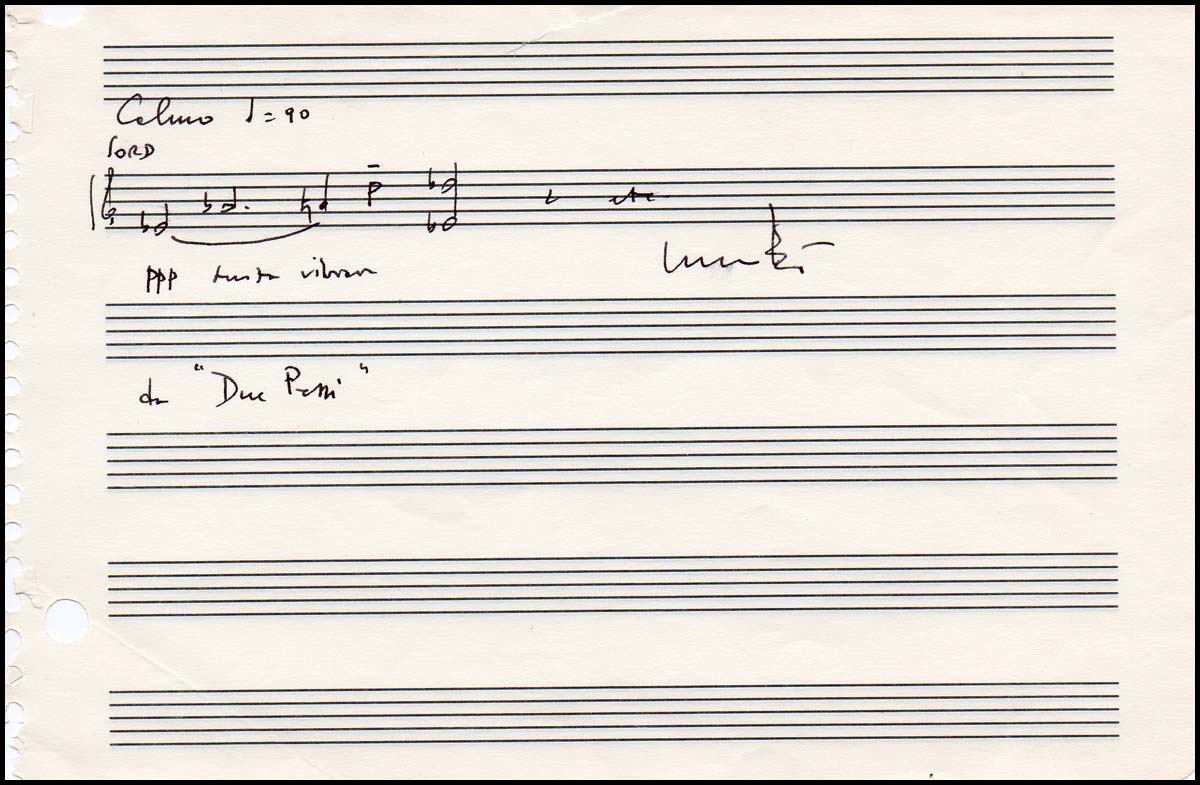 Calmo ♩= 90
SORD
etc.
ppp senza vibrare
da "Due Pezzi"